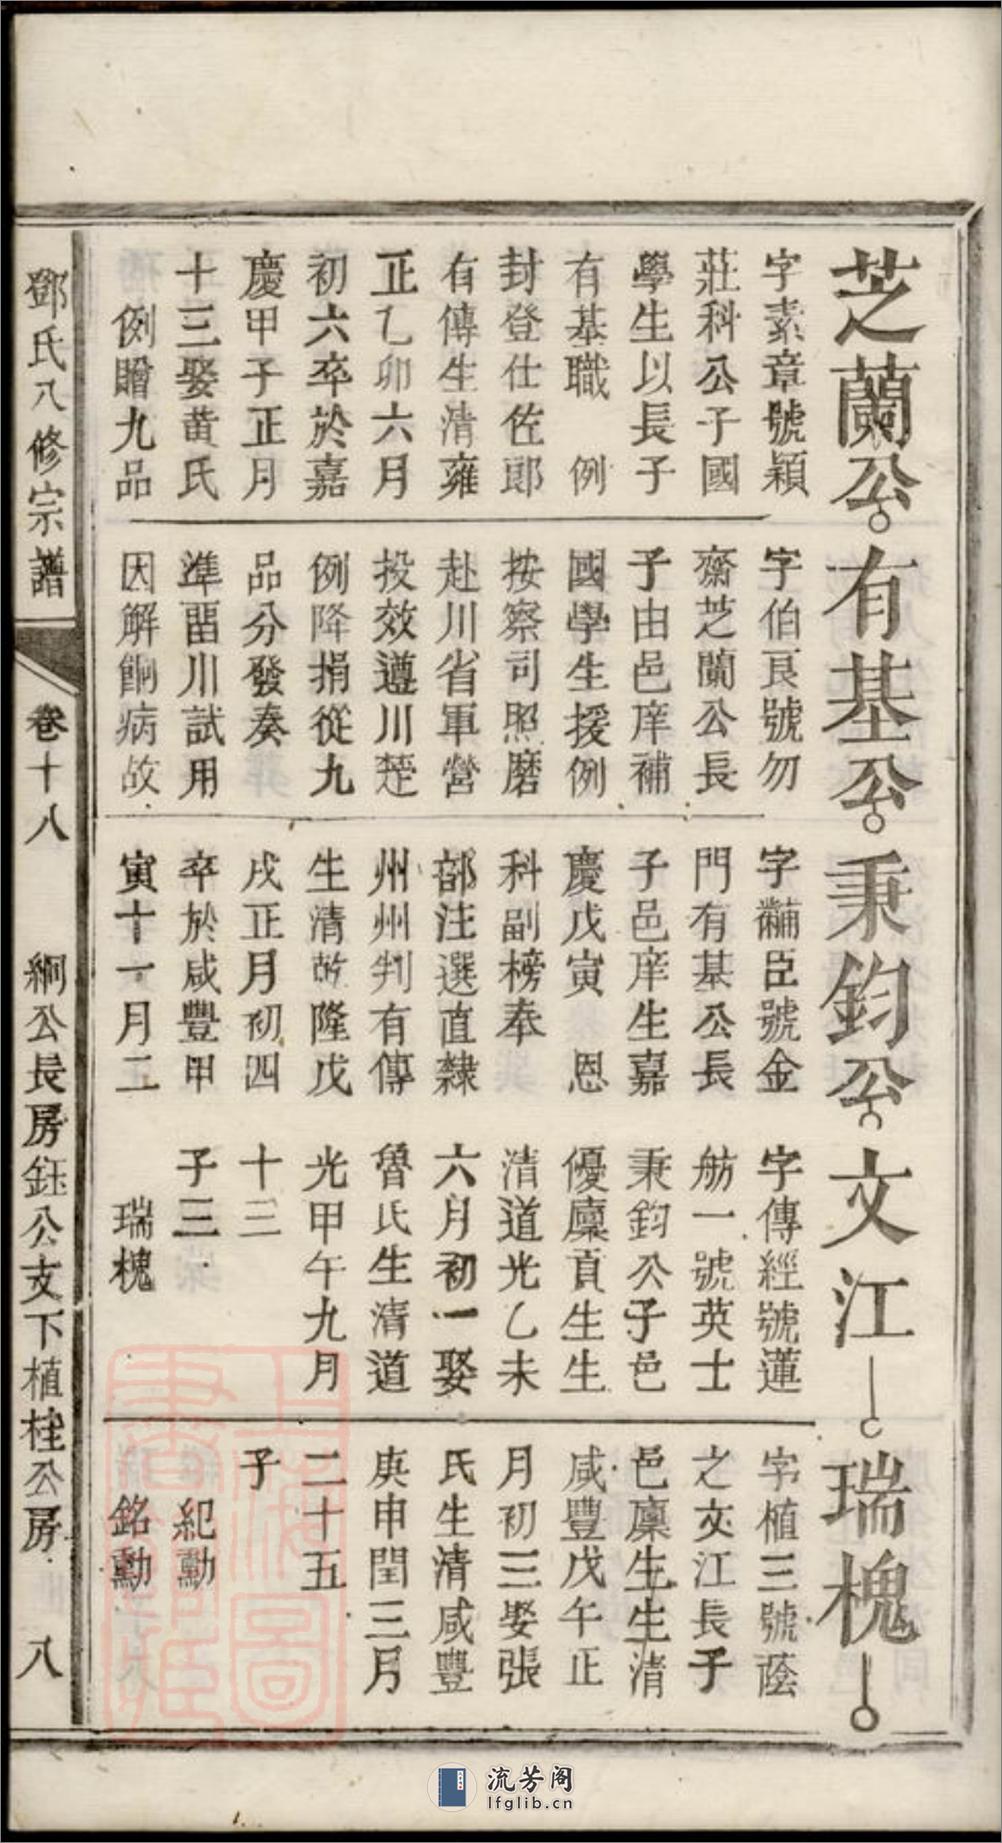 芝蘭公
字素章號穎
莊科公子國
學生以長子
有基職　例
封登仕佐郎
有傳生清雍
正乙卯六月
初六卒於嘉
慶甲子正月
十三娶黄氏
例贈九品
有基公
字伯良號勿
齋芝蘭公長
子由邑庠補
國學生援例
按察司照磨
赴川省軍營
投效遵川楚
例降捐從九
品分發奏
準畱川試用
因解餉病故
秉鈞公
字黼臣號金
門有基公長
子邑庠生嘉
慶戊寅　恩
科副榜奉
部注選直隸
州州判有傳
生清乾隆戊
戌正月初四
卒於咸豐甲
寅十一月二
文江
字傳經號蓮
舫一號英士
秉鈞公子邑
優廩貢生生
清道光乙未
六月初一娶
魯氏生清道
光甲午九月
十三
子三
瑞槐
瑞槐
字植三號蔭
之文江長子
邑廩生生清
咸豐戊午正
月初三娶張
氏生清咸豐
庚申閏三月
二十五
子
紀勳
銘勳
鄧氏八修宗譜
卷十八
綱公長房鈺公支下植桂公房
八
上海圖書館藏
流芳阁
lfglib.cn